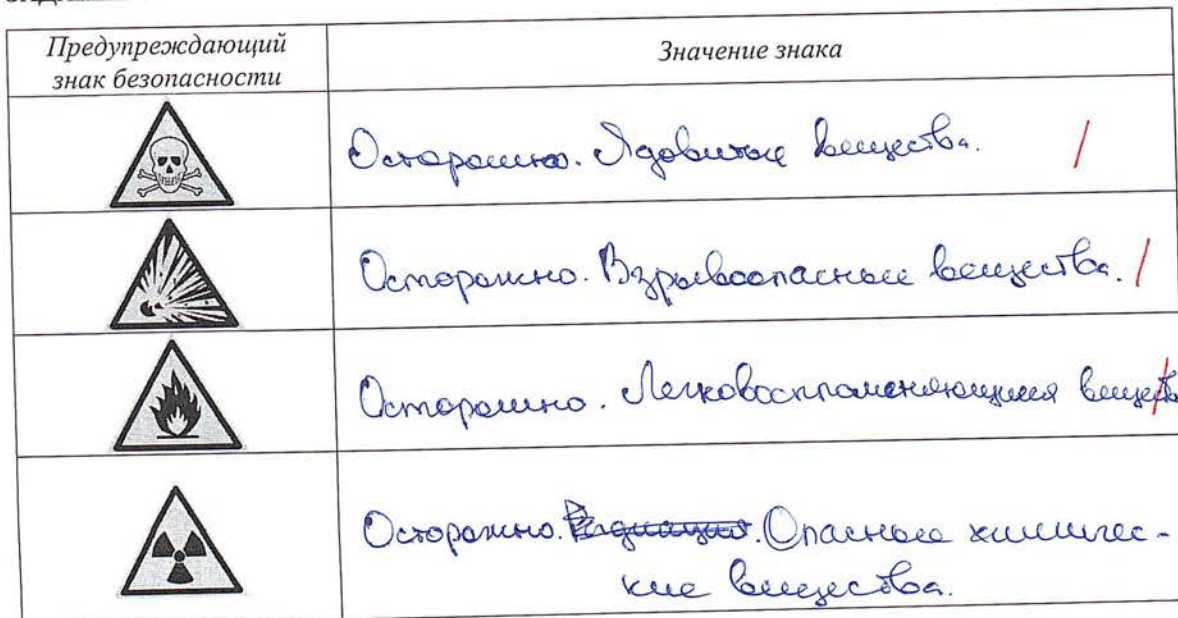 Предупреждающий
знак безопасности
Значение знака
Осторожно. Ядовитые вещества.
Осторожно. Взрывоопасные вещества.
Осторожно. Легковоспламеняющиеся вещества
Осторожно. Радиация. Опасные химичес-
кие вещества.